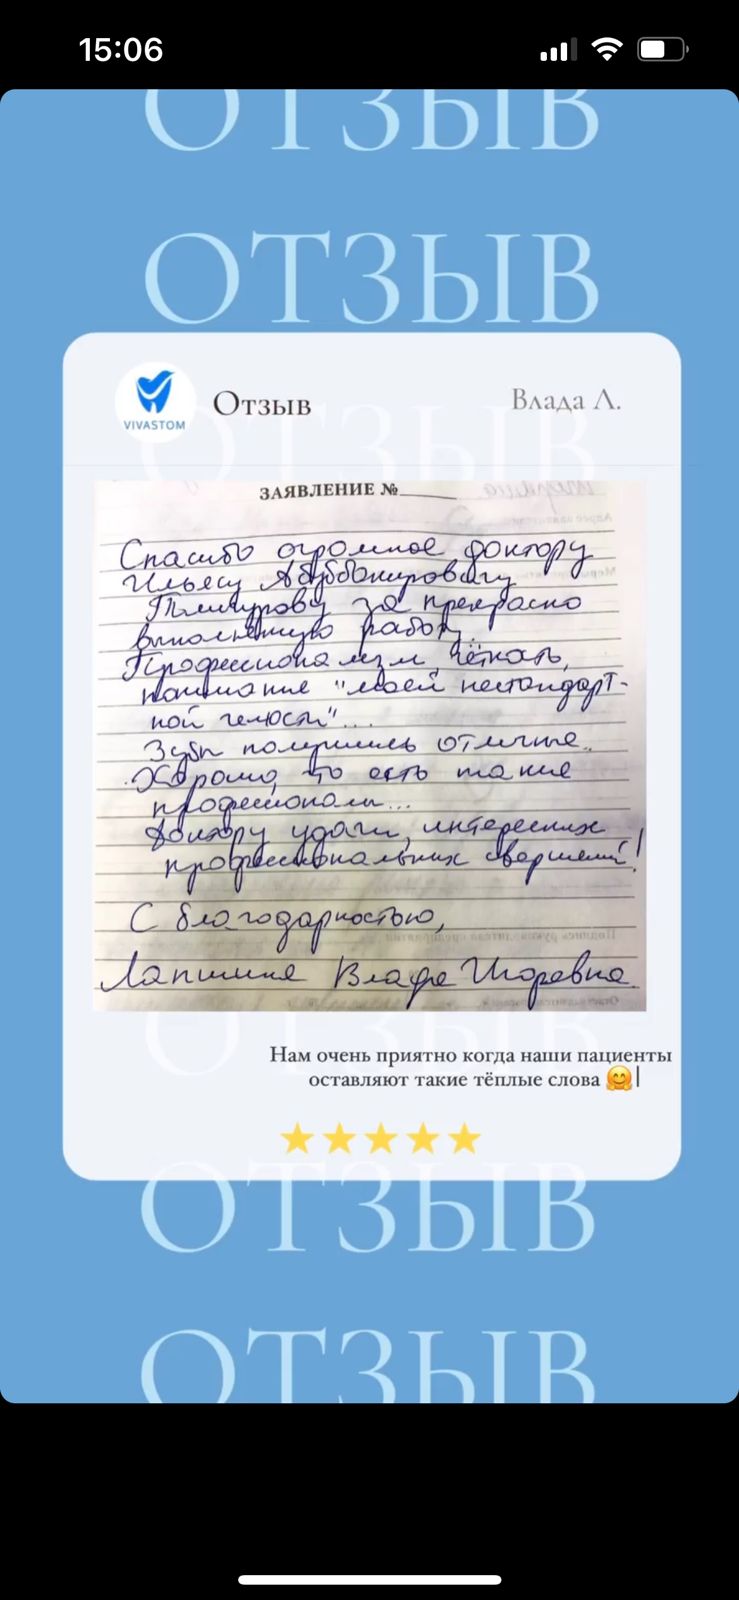 15:06
ОТЗЫВ
ОТЗЫВ
VIVASTOM
Отзыв
Влада Л.
ЗАЯВЛЕНИЕ №
Спасибо огромное доктору
Ильясу Абуббакировичу
Тимирову за прекрасно
выполненную работу.
Профессионализм, чёткость,
понимание "моей нестандарт-
ной челюсти"...
Зубы получились отличные.
Хорошо, что есть такие
профессионалы...
Доктору удачи, интересных
профессиональных свершений!
С благодарностью,
Лапшина Влада Игоревна
Нам очень приятно когда наши пациенты
оставляют такие тёплые слова 🤗
ОТЗЫВ
ОТЗЫВ